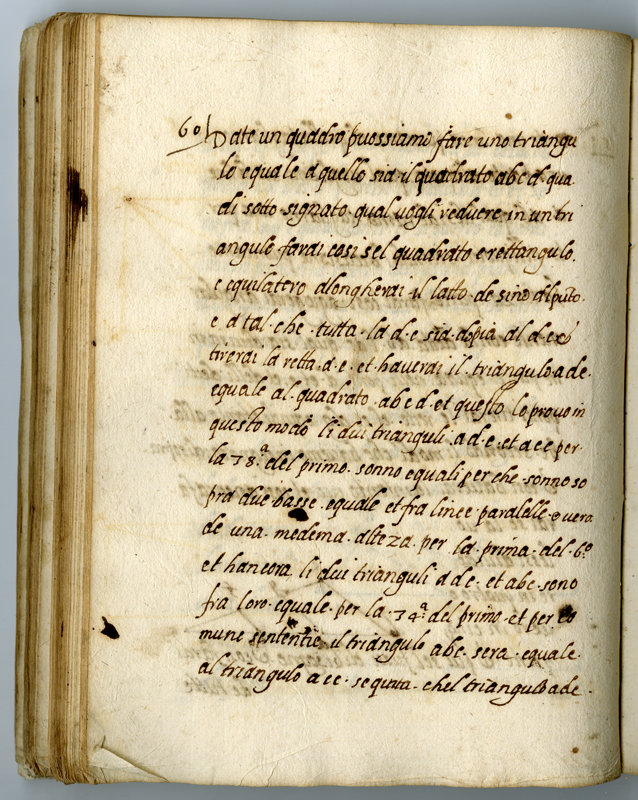 60 Date un quadro puossiamo fare uno triangu
lo equale a quello sia il quadrato abcd qua
di sotto signato qual vogli reduere in un tri
angulo farai cosi sel quadrato e rettangulo.
e equilatero alongherai il latto dc sino al puto.
e a tal che tutta la d.e sia dopia al d.c
tirerai la retta a.e. et haverai il triangulo ade.
equale al quadrato abcd et questo lo provo in
questo modo li dui trianguli adc et ace per
la 38ª del primo sonno equali perche sonno so
pra due basse equale et fra linee paralelle overa
de una medema alteza per la prima del 6º
et hancora li dui trianguli adc et abc sono
fra loro equale per la 34ª del primo et per co
mune sententie il triangulo abc sera equale
al triangulo ace sequita chel triangulo ade